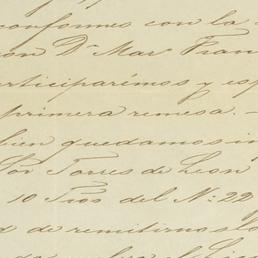 conformes con la
con Dⁿ Mar Fran
rticiparémos y esp
primera remesa. -
bien quedamos in
Sor Torres de Leon
10 Pios del Nº 22
d de remitirnos